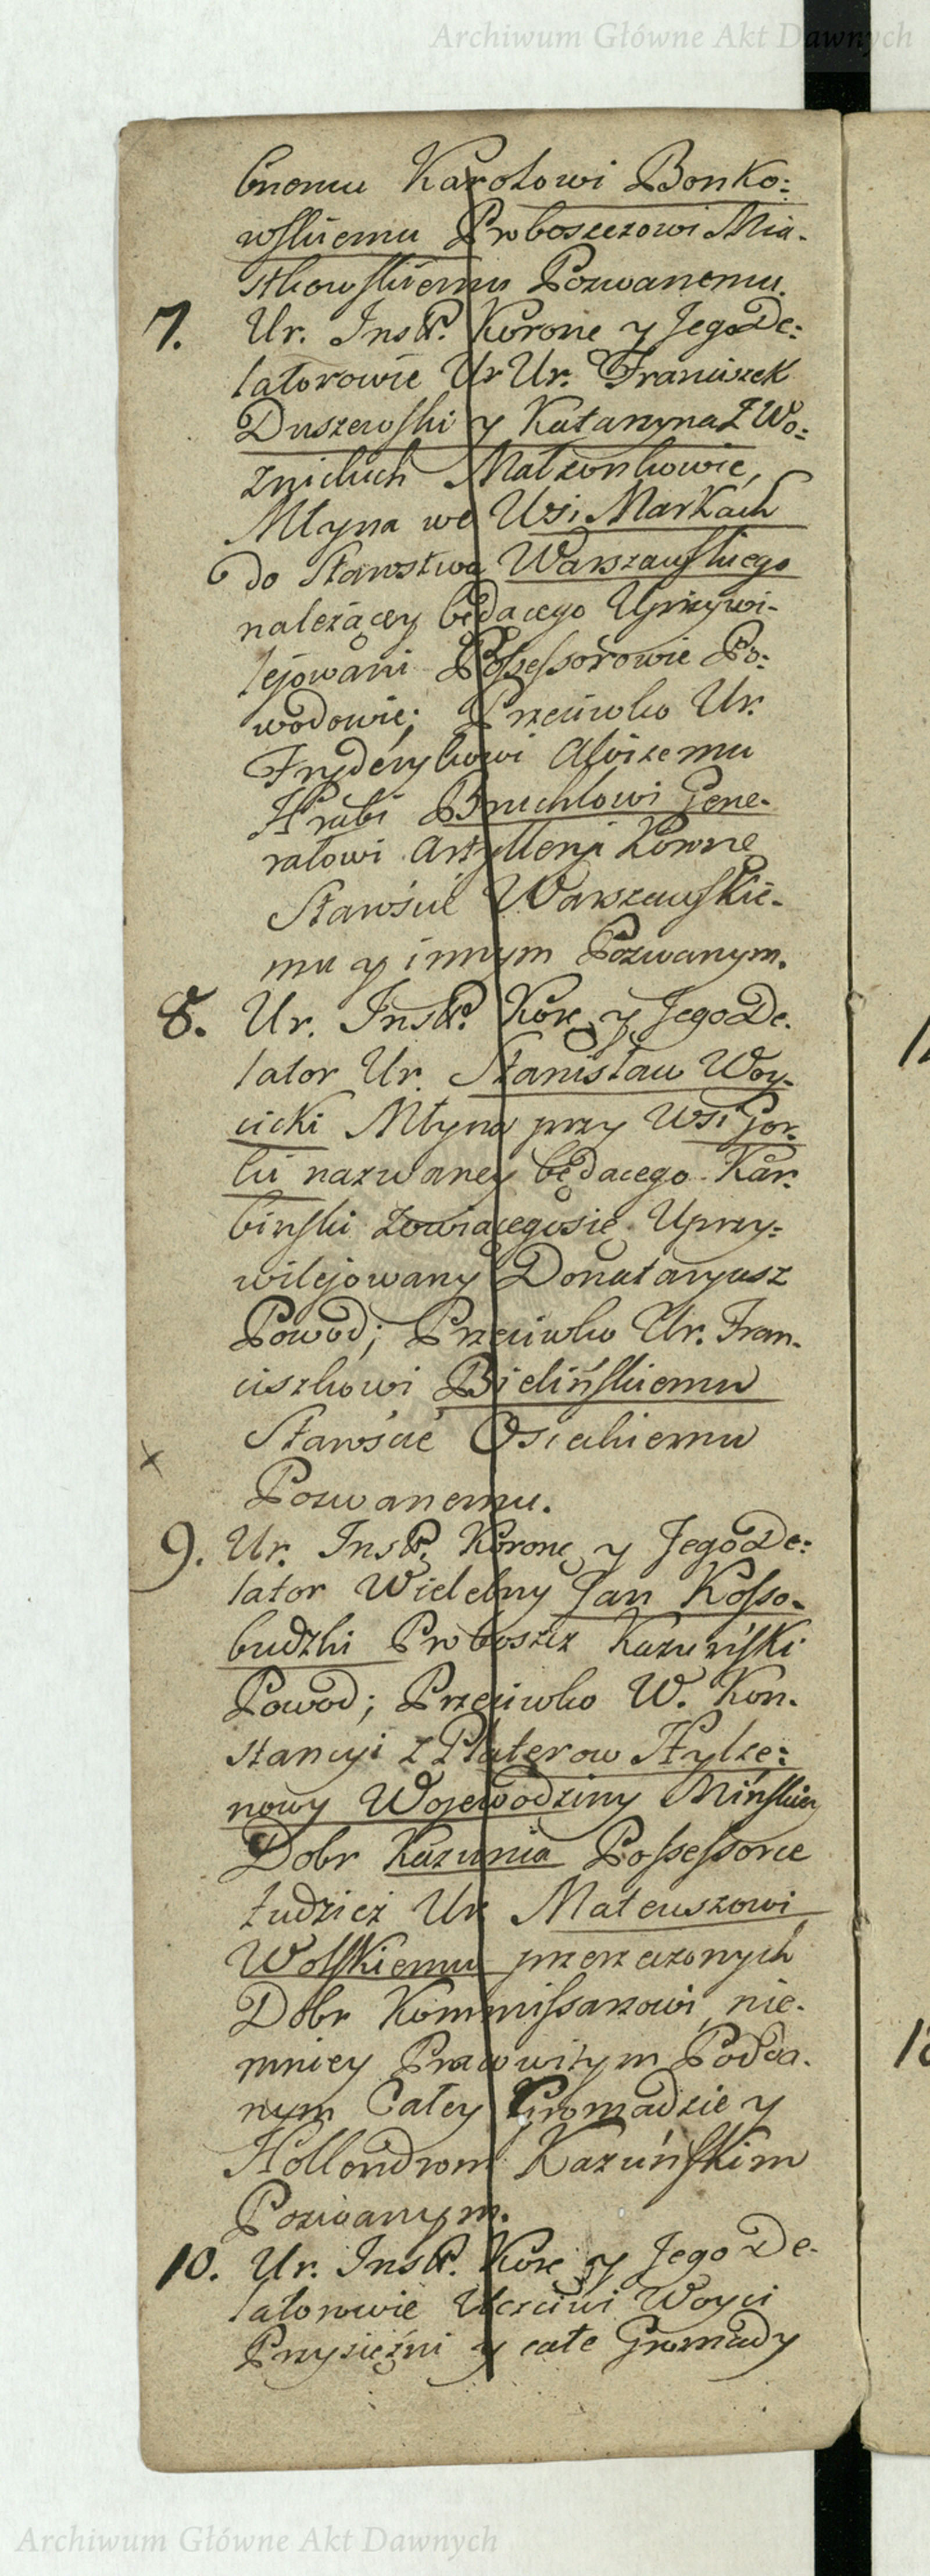 Archiwum Główne Akt Dawnych
bnemu Karolowi Bonko:
wskiemu Proboszczowi Mia-
stkowskiemu Pozwanemu.
7. Ur. Inst. Koronę y Jego De:
latorowie Ur Ur. Franciszek
Duszewski y Katarzyna Z Wo:
znickich Małżonkowie,
Młyna we Wsi Markach
do Starostwa Warszawskiego
należącey będącego Uprzywi-
lejowani Possessorowie Po:
wodowie; Przeciwko Ur.
Fryderykowi Aloizemu
Hrabi Bruchlowi Gene-
rałowi Artylleryi Koronne
Starości Warszawskie-
mu y innym Pozwanym.
8. Ur. Inst. Korę y Jego De.
lator Ur. Stanisław Woy-
cicki Młyna przy Wsi Gor.
lii nazwaney będącego Kar:
binski zowiącegosię Uprzy:
wilejowany Donataryusz
Powod; Przeciwko Ur. Fran-
ciszkowi Bielińskiemu
Starości Osieckiemu
Pozwanemu.
9. Ur. Inst. Koronę y Jego De:
lator Wielebny Jan Kosso-
budzki Proboszcz Kazuński
Powod; Przeciwko W. Kon-
stancyi z Platerow Hylze:
nowy Wojewodziny Mińskiey
Dobr Kazunia Possessorce
tudzież Ur. Mateuszowi
Wolskiemu przerzeczonych
Dobr Kommissarzowi, nie-
mniey Prawwitym Podda-
nym Całey Gromadzie y
Hollendrom Kazuńskim
Pozwanym.
10. Ur. Inst. Korę y Jego De-
latorowie Uczciwi Woyci
Przysiężni y całe Gromady
Archiwum Główne Akt Dawnych